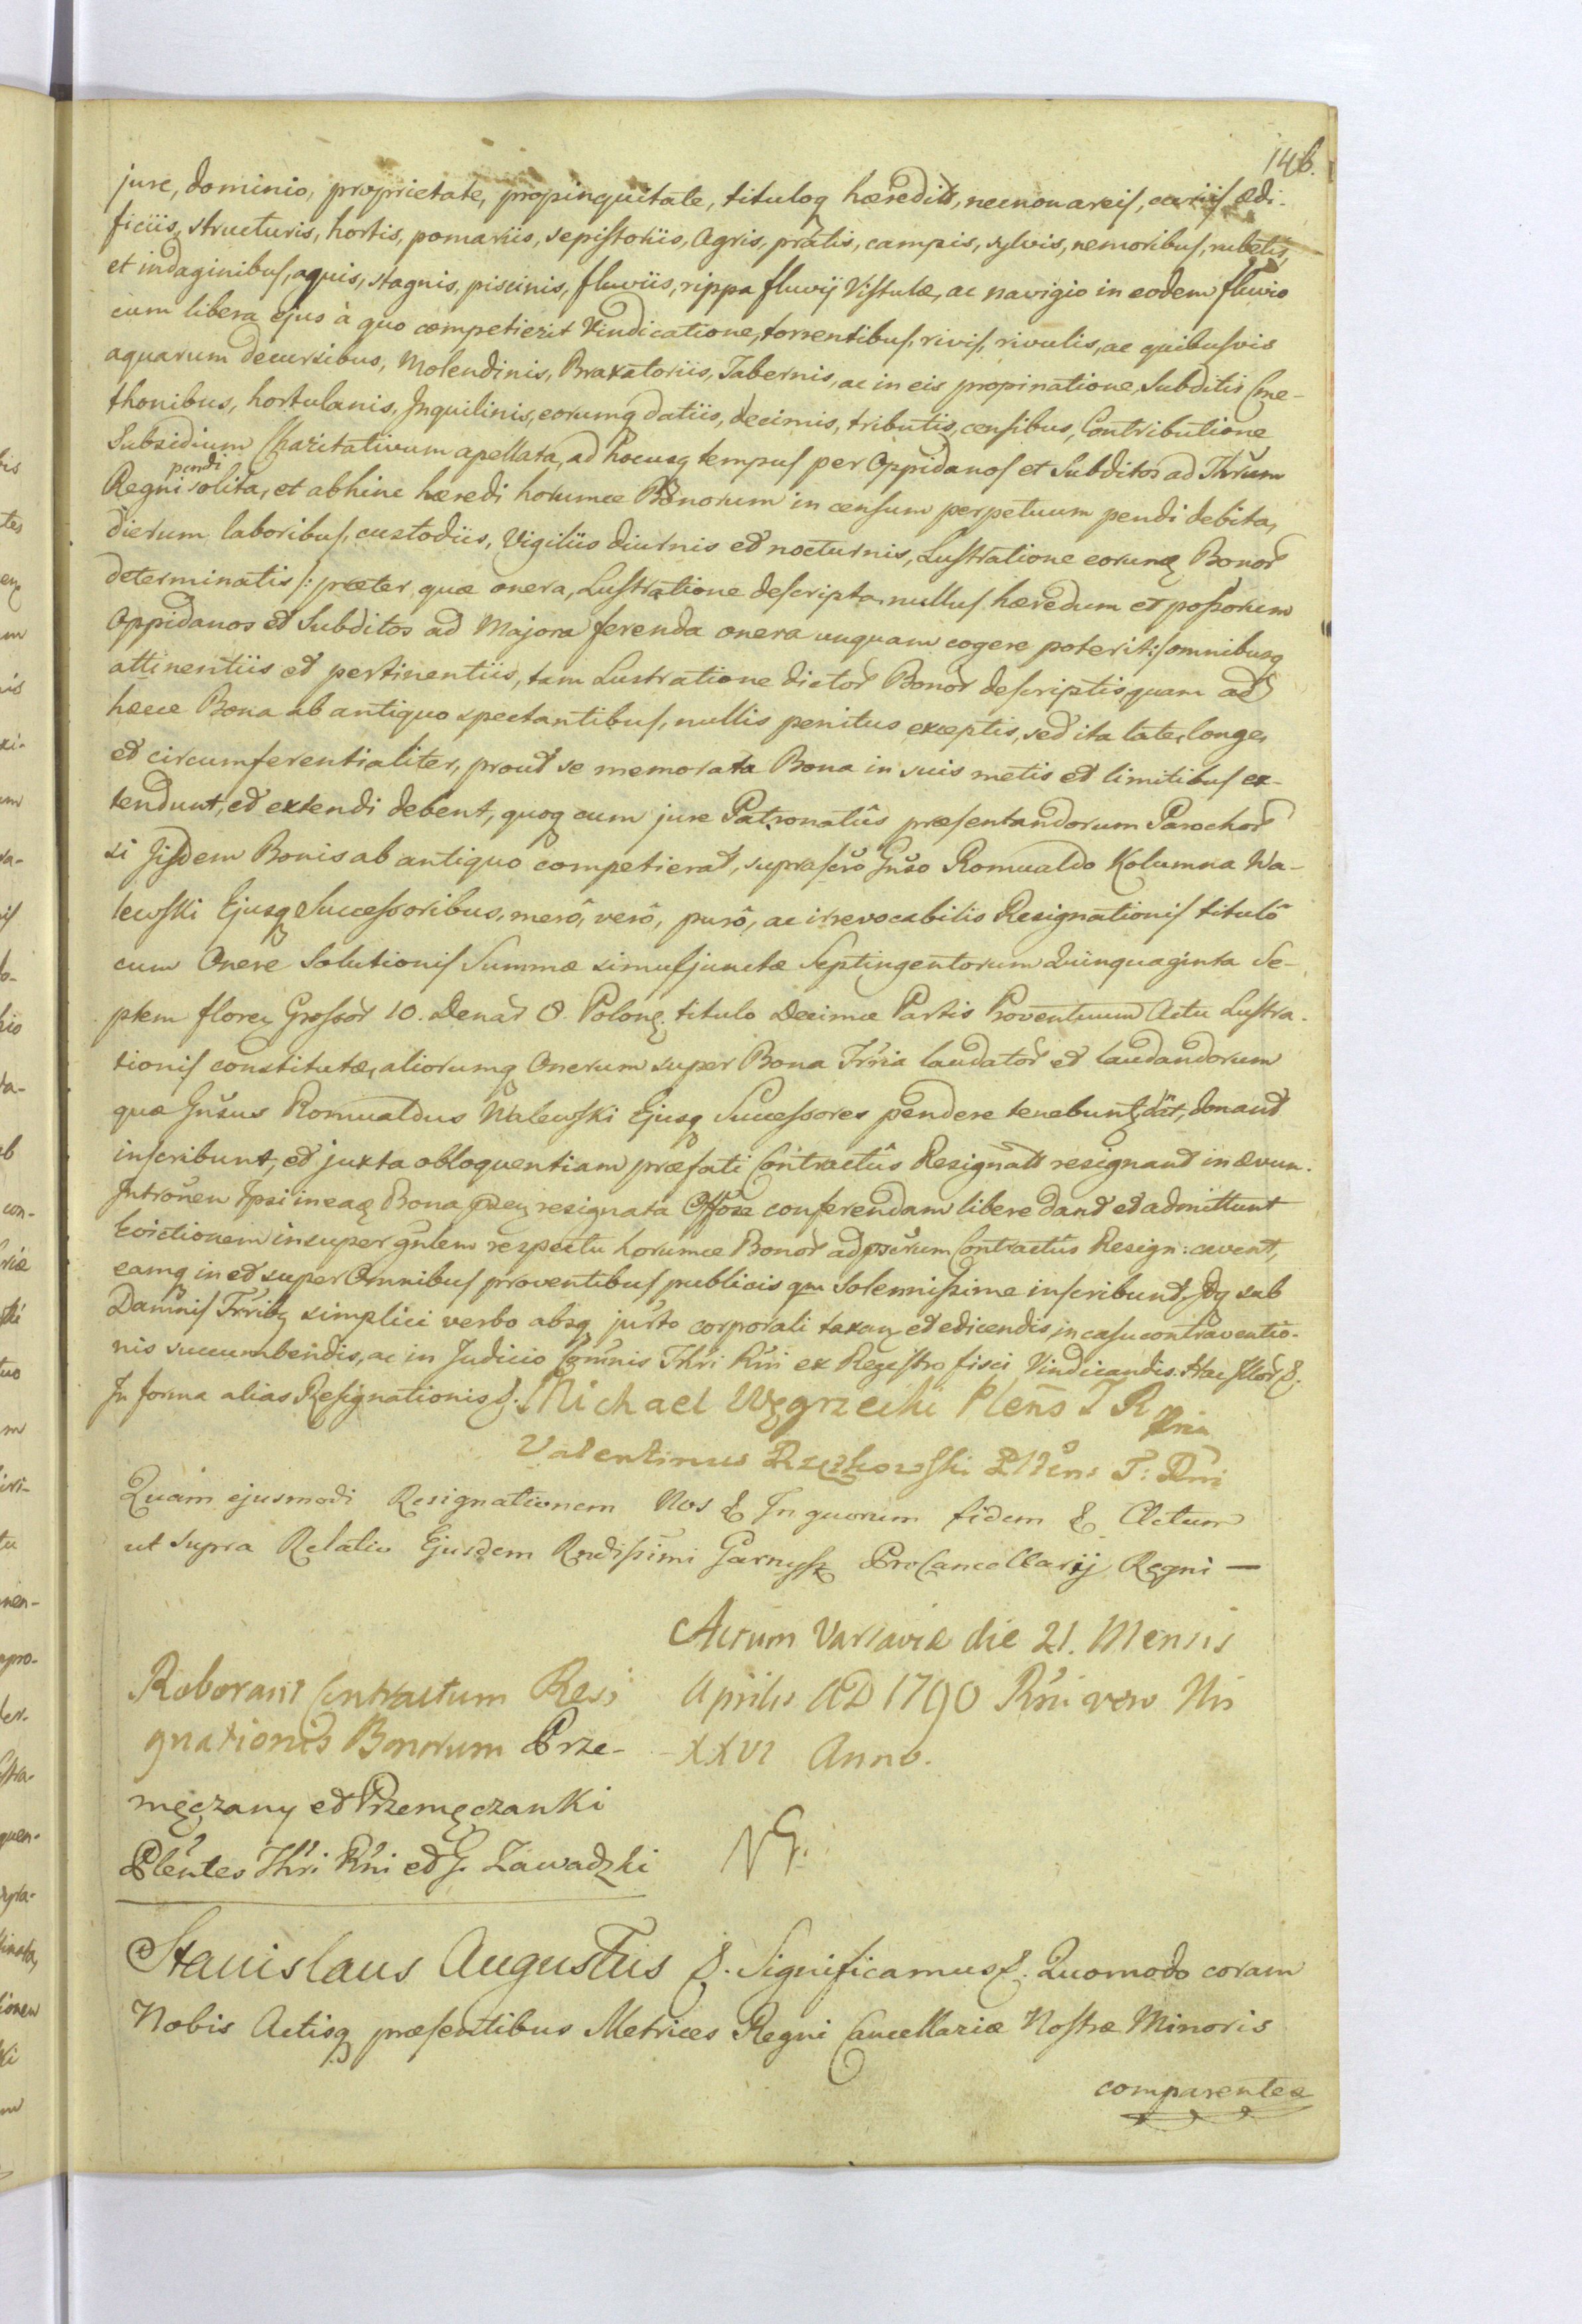 146.
jure, dominio, proprietate, propinquitate, tituloq hæredit̃, necnon areis, curiis ædi-
ficiis, structuris, hortis, pomariis, sepistoriis, Agris, pratis, campis, sylvis, nemoribus, rubetis,
et indaginibus, aquis, stagnis, piscinis, fluviis, rippa fluvij Vistulæ, ac navigio in eodem fluvio
cum libera ejus à quo competierit Vindicatione, torrentibus, rivis, rivulis, ac quibusvis
aquarum decursibus, Molendinis, Braxatoriis, Tabernis, ac in eis propinatione, Subditis Cme-
thonibus, hortulanis, Inquilinis, eorumq datiis, decimis, tributis, censibus, Contributione
Subsidium Charitativum apellata, ad hocusq tempus per Oppidanos et Subditos ad Thrũm
Regni pendi solita, et abhinc hæredi horumce Bonorum in censum perpetuum pendi debita,
dierum laboribus, custodiis, Vigiliis diurnis et nocturnis, Lustratione eorunq Bonor̃
determinatis /: præter quæ onera, Lustratione descripta, nullus hæredum et possorum
Oppidanos et Subditos ad Majora ferenda onera unquam cogere poterit :/ omnibusq
attinentiis et pertinentiis, tam Lustratione dictor̃ Bonor̃ descriptis, quam ad
hæce Bona ab antiquo spectantibus, nullis penitus exceptis, sed ita late, longe,
et circumferentialiter, prout se memorata Bona in suis metis et limitibus ex-
tendunt, et extendi debent, quoq cum jure Patronatûs præsentandorum Parochor̃
si Iisdem Bonis ab antiquo competierat, suprascr̃o Gñso Romualdo Kolumna Wa-
lewski Ejusq Successoribus, merô, verô, purô, ac irrevocabilis Resignationis titulô
cum Onere Solutionis Summæ simul junctæ Septingentorum Quinquaginta Se-
ptem floreñ Grossor̃ 10. Denar̃ 8. Poloñ. titulo Decimæ Partis Proventuum Actu Lustra-
tionis constitutæ, aliorumq Onerum super Bona Tr̃ria laudator̃ et laudandorum
quæ Gñsus Romualdus Walewski Ejusq Successores pendere tenebunt, dat, donant
inscribunt, et juxta obloquentiam præfati Contractûs Resignatt resignant in ævum.
Intrõnem Ipsi in eaq Bona resignata Offose conferendam libere dant et admittunt
Evictionem insuper gñlem respectu horumce Bonor̃ ad Contractûs Resign: cavent,
eamq in et super Omnibus proventibus publicis qm Solemnissime inscribunt, Idq sub
Damnis Tr̃rib simplici verbo absq jur̃to corporali taxañ et edicendis, in casu contraventio-
nis succumbendis, ac in Judicio Com̃nis Thr̃i Rñi ex Regestro fisci Vindicandis. Hac &.
In forma alias Resignationis &. Michael Węgrzecki Pleñs T R
Valentinus Rzęzkowski T: Rñi
Quam ejusmodi Resignationem Nos & In quorum fidem & Actum
ut supra Relatio Ejusdem Rndissimi Garnysz ProCancellarij Regni —
Actum Varsaviæ die 21. Mensis
Aprilis AD 1790 Rñi vero Nri
XXVI Anno.
Roborant Contractum Resi
gnationis Bonorum Prze-
męczany et Przemęczanki
Pleñtes Thr̃i Rñi et G. Zawadzki
NG.
Stanislaus Augustus &. Significamus &. Quomodo coram
Nobis Actisq præsentibus Metrices Regni Cancellariæ Nostræ Minoris
comparentes